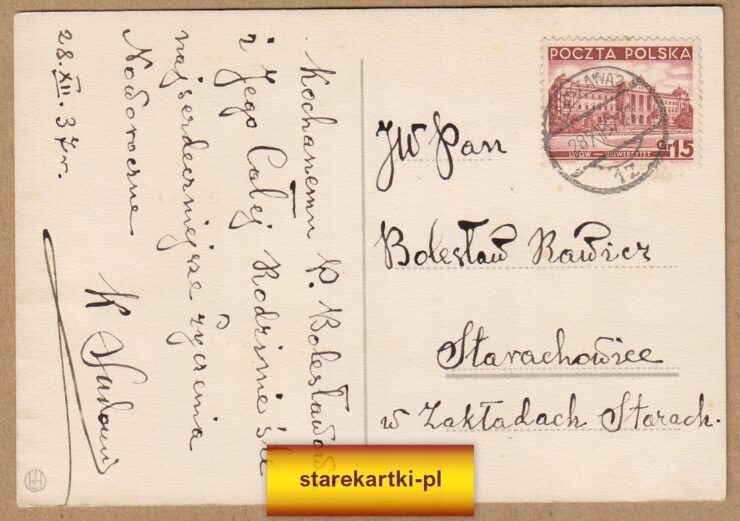 Kochanemu P. Bolesławowi
i Jego Całej Rodzinie śle
najserdeczniejsze życzenia
Noworoczne
28.XII.37r.
K
POCZTA POLSKA
LWÓW — UNIWERSYTET
Gr 15
JW Pan
Bolesław Rawicz
Starachowice
w Zakładach Starach.
starekartki-pl